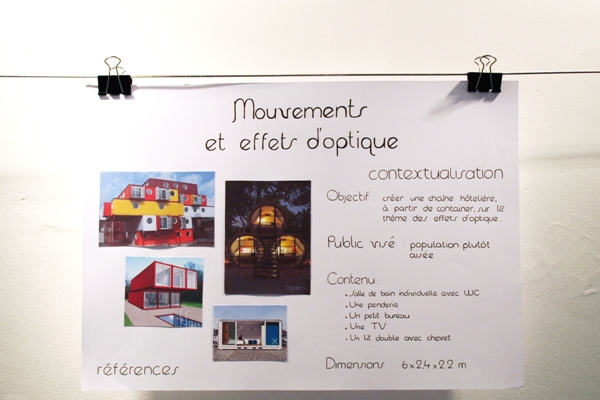 Mouvements
et effets d'optique
contextualisation
Objectif : créer une chaîne hôtelière,
à partir de container, sur le
thème des effets d'optique.
Public visé : population plutôt
aisée
Contenu :
• Salle de bain individuelle avec WC
• Une penderie
• Un petit bureau
• Une TV
• Un lit double avec chevet
Dimensions : 6x2,4x2.2 m
références